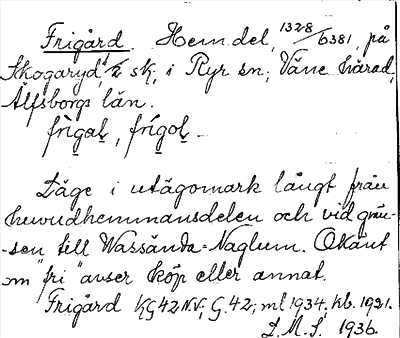 Frigård. Hemdel, 1328/6381, på
Skogaryd, 1/2 sk, i Ryr sn, Väne härad,
Älfsborgs län.
frìgaḷ, frígoḷ.
Läge i utägomark långt från
huvudhemmansdelen och vid grän-
-sen till Wassända-Naglum. Okänt
om "fri" avser köp eller annat.
Frigård KG 42 N.V., G. 42; ml 1934. hb. 1921.
L.M.S. 1936.